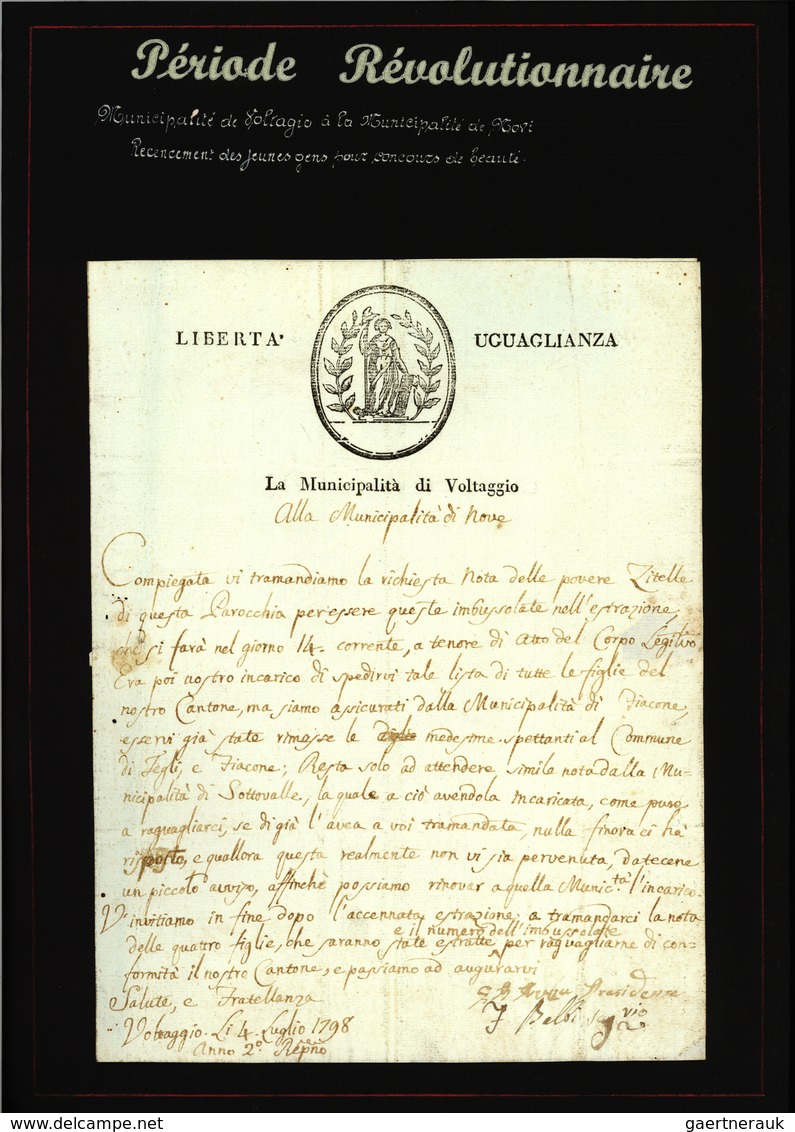 Période Révolutionnaire
Municipalité de Voltagio à la Municipalité de Novi
Recencement des jeunes gens pour concours de beauté.
LIBERTA' UGUAGLIANZA
La Municipalità di Voltaggio
Alla Municipalità di Nove
Compiegata vi tramandiamo la richiesta Nota delle povere Zitelle
di questa Parocchia per essere queste imbussolate nell'estrazione,
che si farà nel giorno 14. corrente, a tenore di Atto del Corpo Legil.vo
Era poi nostro incarico di spedirvi tale lista di tutte le figlie del
nostro Cantone, ma siamo assicurati dalla Municipalità di Fiacone,
esservi già state rimesse le medesime spettanti al Commune
di Tegli, e Fiacone; Resta solo ad attendere simile nota dalla Mu-
nicipalità di Sottovalle, la quale a ciò avendola incaricata, come pure
a raguagliarci, se di già l'avea a voi tramandata, nulla finora ci hà
risposto, e quallora questa realmente non vi sia pervenuta, datecene
un piccolo avviso, affinchè possiamo rinovar a quella Munic.tà l'incarico.
V'invitiamo in fine dopo l'accennata estrazione, a tramandarci la nota
e il numero dell'imbussolate
delle quattro figlie, che saranno state estratte per raguagliarne di con=
formità il nostro Cantone, e passiamo ad augurarvi
Salute, e Fratellanza
Presidente
F Balbi
Voltaggio. Li 4. Luglio 1798
Anno 2.º Rep.no
delcampe.net
gaertnerauk